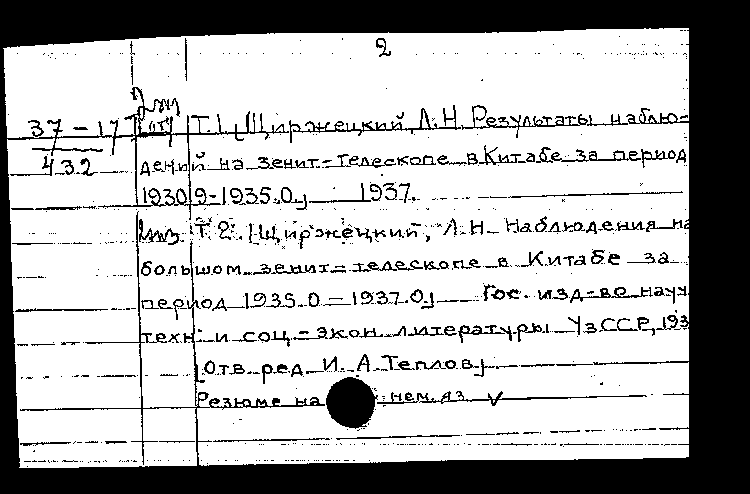 2
37-17 Т. 1, Щиржецкий, Л.Н. Результаты наблю-
432 дений на зенит-телескопе в Китабе за период
1930,9-1935.0, 1937.
Т. 2. Щиржецкий, Л.Н. Наблюдения на
большом зенит-телескопе в Китабе за
период 1935.0 – 1937.0, Гос. изд-во науч
техн. и соц.-экон. литературы УзССР, 193
[Отв. ред. И. А. Теплов]
Резюме на нем. яз. V